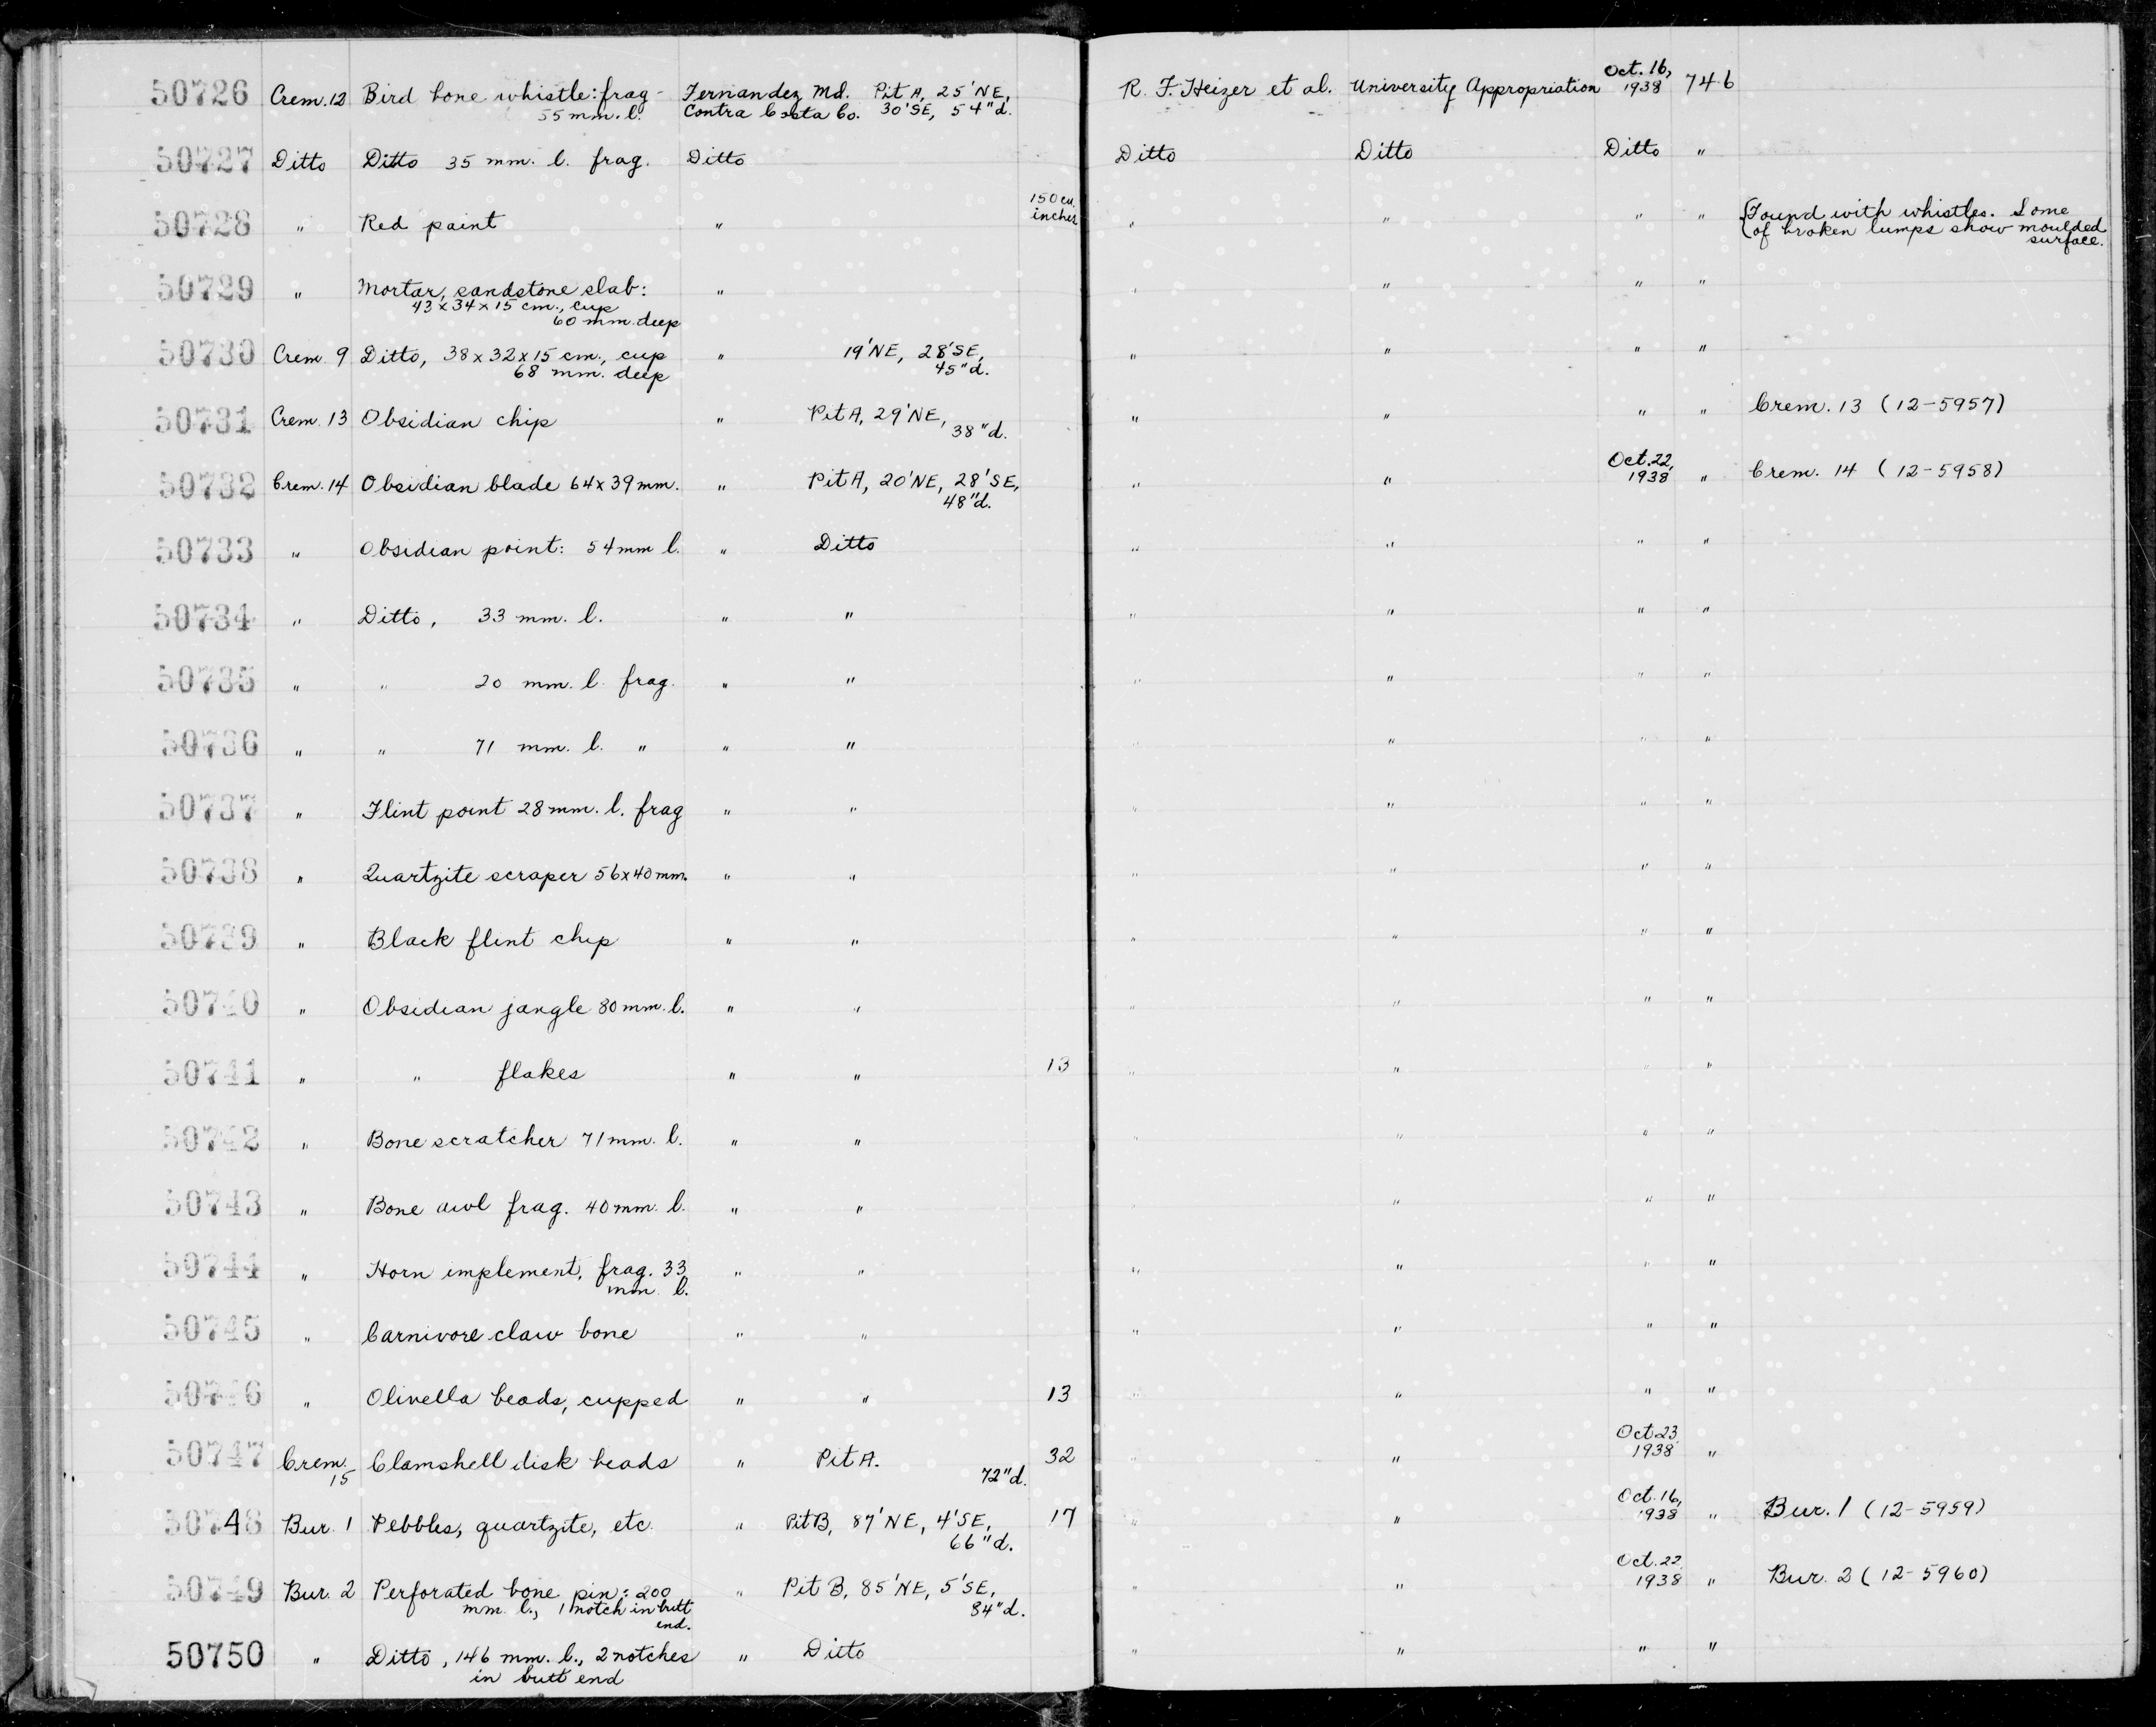 50726 Crem. 12 Bird bone whistle: frag - Fernandez Md. Pit A, 25' NE, R. F. Heizer et al. University Appropriation Oct. 16, 1938 746
55 mm. l. Contra Costa Co. 30' SE, 54" d.
50727 Ditto Ditto 35 mm. l. frag. Ditto Ditto Ditto Ditto "
50728 " Red paint " 150 cu. inches " " " " Found with whistles. Some
of broken lumps show moulded
surface.
50729 " Mortar, sandstone slab: " " " " "
43 x 34 x 15 cm., cup
60 mm. deep
50730 Crem. 9 Ditto, 38 x 32 x 15 cm., cup " 19' NE, 28' SE, " " " "
68 mm. deep 45" d.
50731 Crem. 13 Obsidian chip " Pit A, 29' NE, " " " " Crem. 13 (12-5957)
38" d.
50732 Crem. 14 Obsidian blade 64 x 39 mm. " Pit A, 20' NE, 28' SE, " " Oct. 22, 1938 " Crem. 14 (12-5958)
48" d.
50733 " Obsidian point: 54 mm l. " Ditto " " " "
50734 " Ditto, 33 mm. l. " " " " " "
50735 " " 20 mm. l. frag. " " " " " "
50736 " " 71 mm. l. " " " " " " "
50737 " Flint point 28 mm. l. frag " " " " " "
50738 " Quartzite scraper 56 x 40 mm. " " " " " "
50739 " Black flint chip " " " " " "
50740 " Obsidian jangle 80 mm. l. " " " " " "
50741 " " flakes " " 13 " " " "
50742 " Bone scratcher 71 mm. l. " " " " " "
50743 " Bone awl frag. 40 mm. l. " " " " " "
50744 " Horn implement, frag. 33 " " " " " "
mm l.
50745 " Carnivore claw bone " " " " " "
50746 " Olivella beads, cupped " " 13 " " " "
50747 Crem. 15 Clamshell disk beads " Pit A. 32 " " Oct 23, 1938 "
72" d.
50748 Bur. 1 Pebbles, quartzite, etc. " Pit B, 87' NE, 4' SE, 17 " " Oct. 16, 1938 " Bur. 1 (12-5959)
66" d.
50749 Bur. 2 Perforated bone pin: 200 " Pit B, 85' NE, 5' SE, " " Oct. 22, 1938 " Bur. 2 (12-5960)
mm l., 1 notch in butt 84" d.
end.
50750 " Ditto, 146 mm. l., 2 notches " Ditto " " " "
in butt end